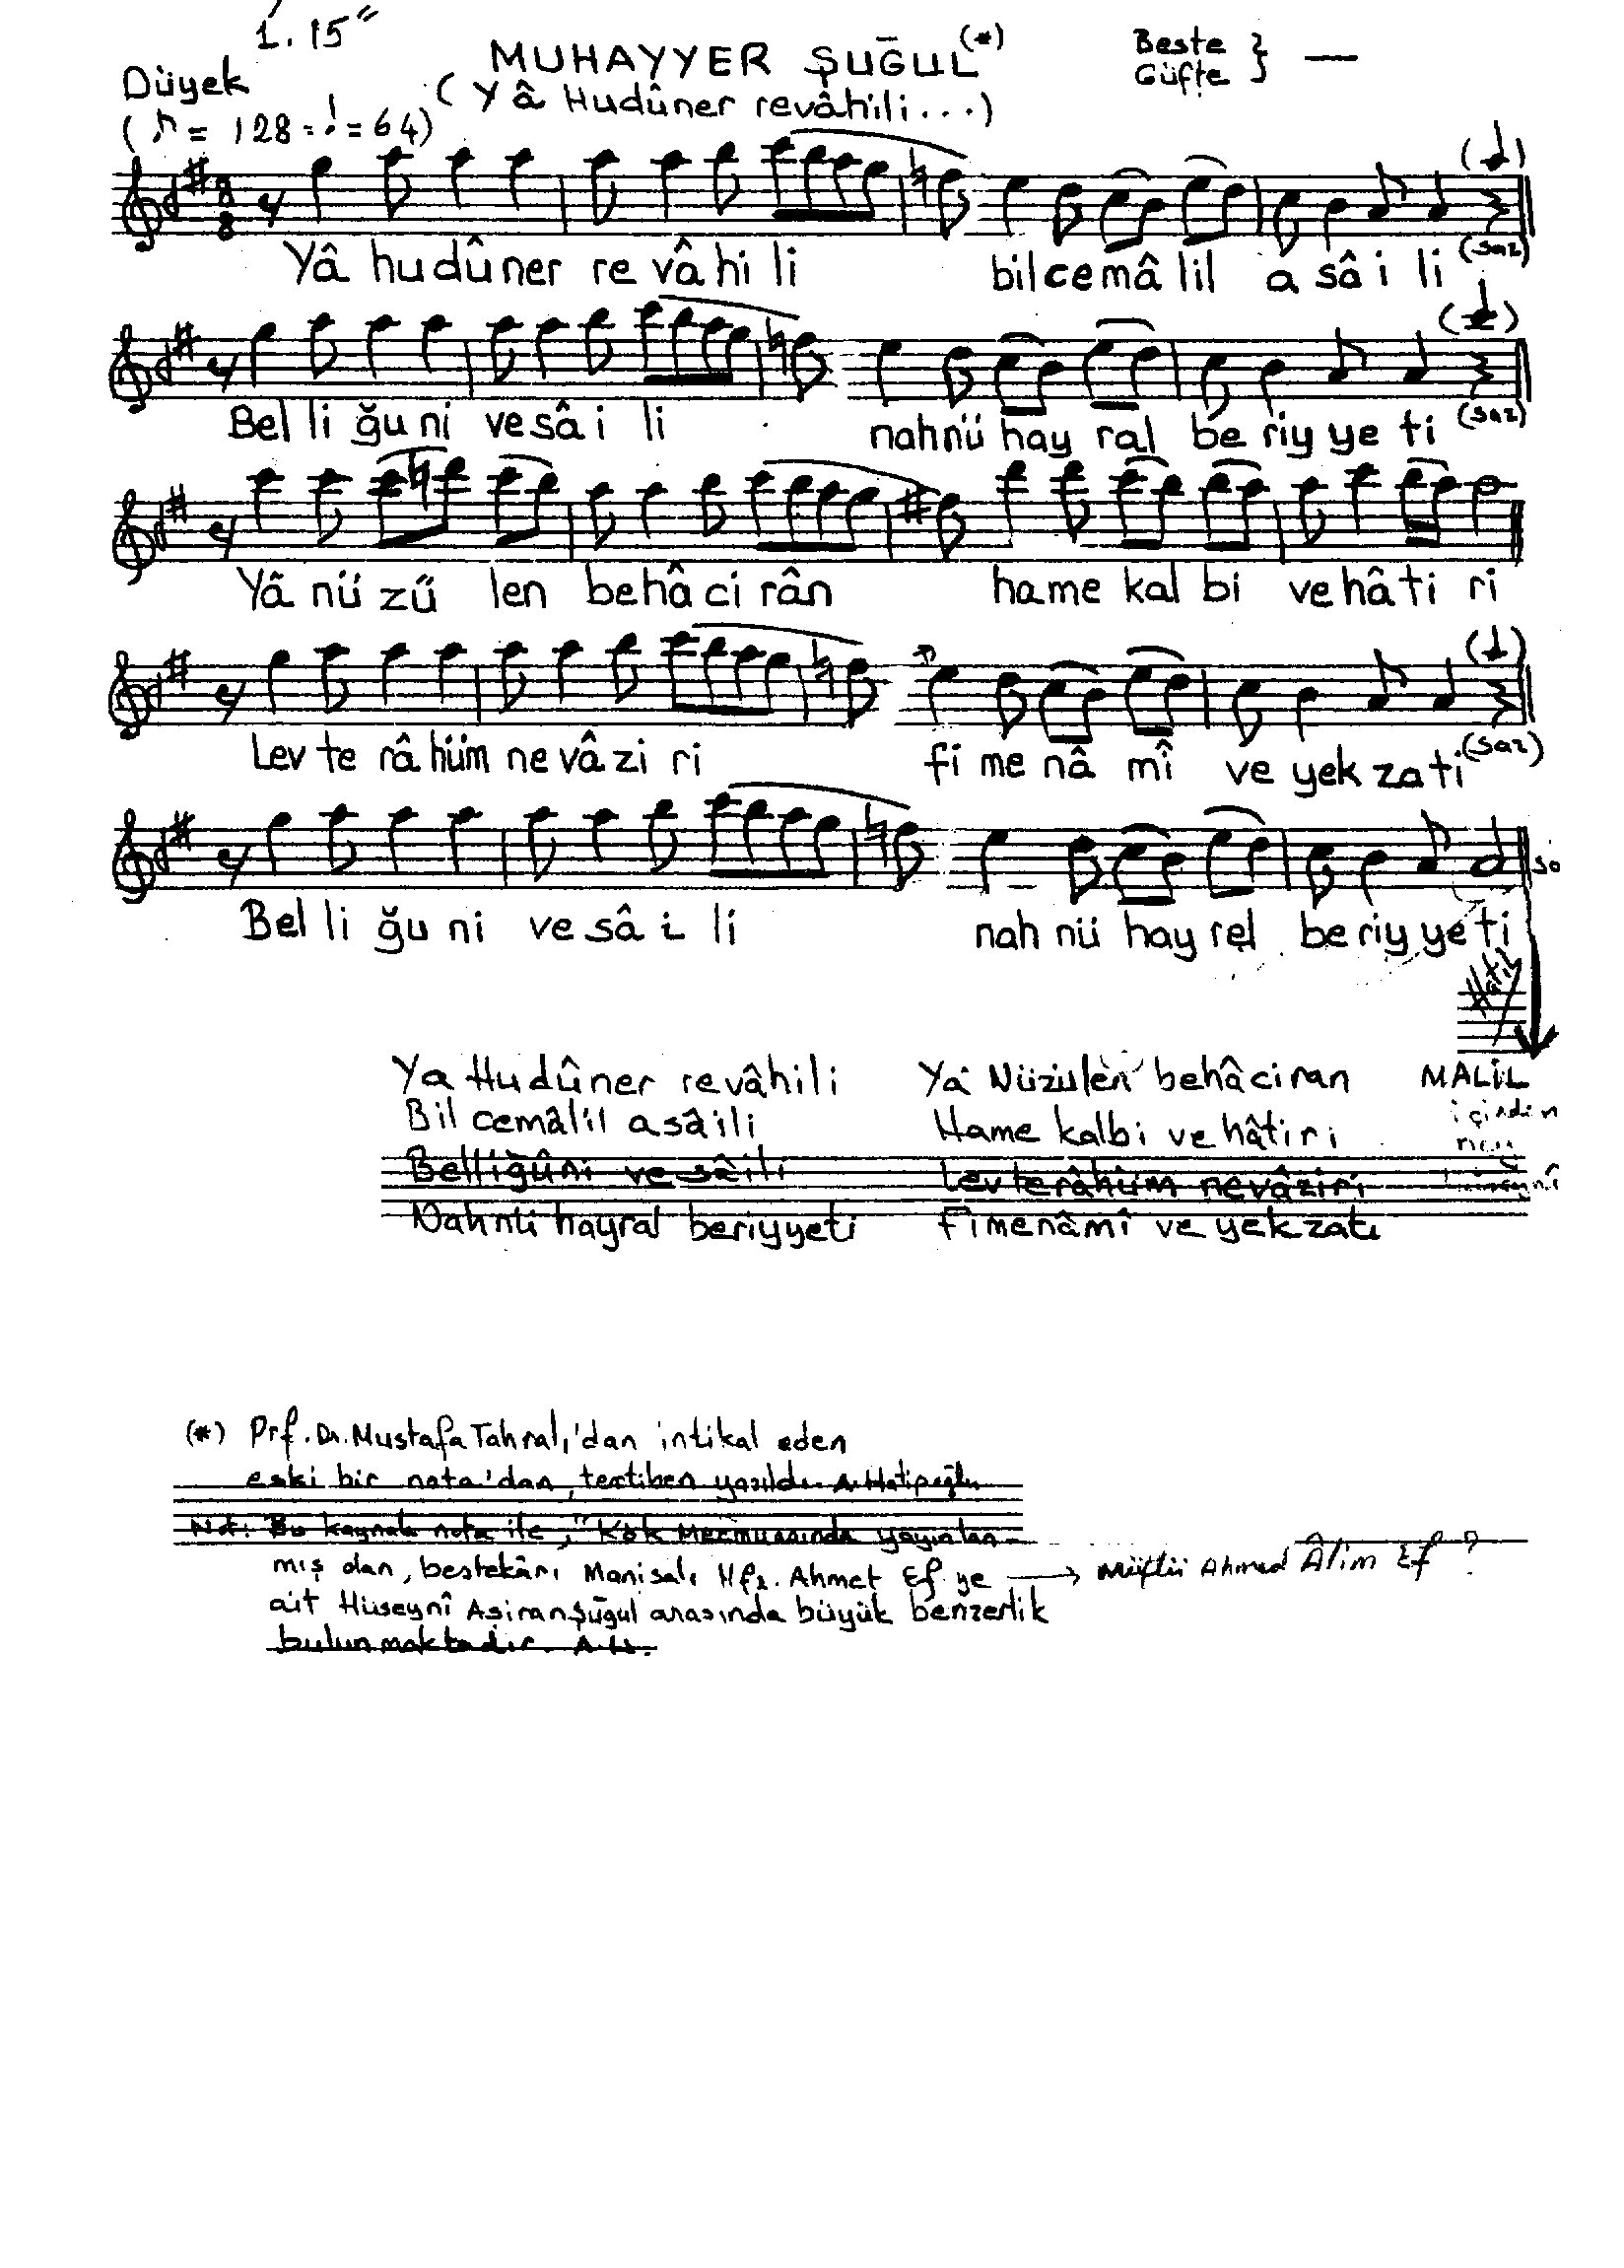 1. 15"
MUHAYYER ŞUĞUL (*)
Beste
Güfte } —
Düyek
(Yâ Hudûner revâhili...)
(♪ = 128 = ♩ = 64)
Yâ hudûner re vâ hi li bilcemâlil a sâ i li (saz)
Bel li ğu ni vesâ i li nahnü hay ral be riy ye ti (saz)
Yâ nü zü len behâ ci rân hame kal bi vehâti ri
Lev te râ hüm ne vâ zi ri fi me nâ mî ve yek za ti (saz)
Bel li ğu ni ve sâ i li nah nü hay rel be riy ye ti
Ya Hudûner revâhili
Bil cemâlil asâili
Belliğûni ve sâili
Nahnü hayral beriyyeti
Ya Nüzulen behâciran
Hame kalbi ve hâtiri
Levterâhüm nevâziri
Fimenâmî ve yekzati
MALİL
içinden
(*) Prf. Dr. Mustafa Tahralı'dan intikal eden
eski bir nota'dan, tertiben yazıldı. A. Hatipoğlu
Not: Bu kaynak nota ile, "Kök Mecmuasında yayınlan-
mış dan, bestekârı Manisalı Hfz. Ahmet Ef. ye → Müftü Ahmed Âlim Ef ?
ait Hüseynî Aşiran Şuğul arasında büyük benzerlik
bulunmaktadır. A.H.